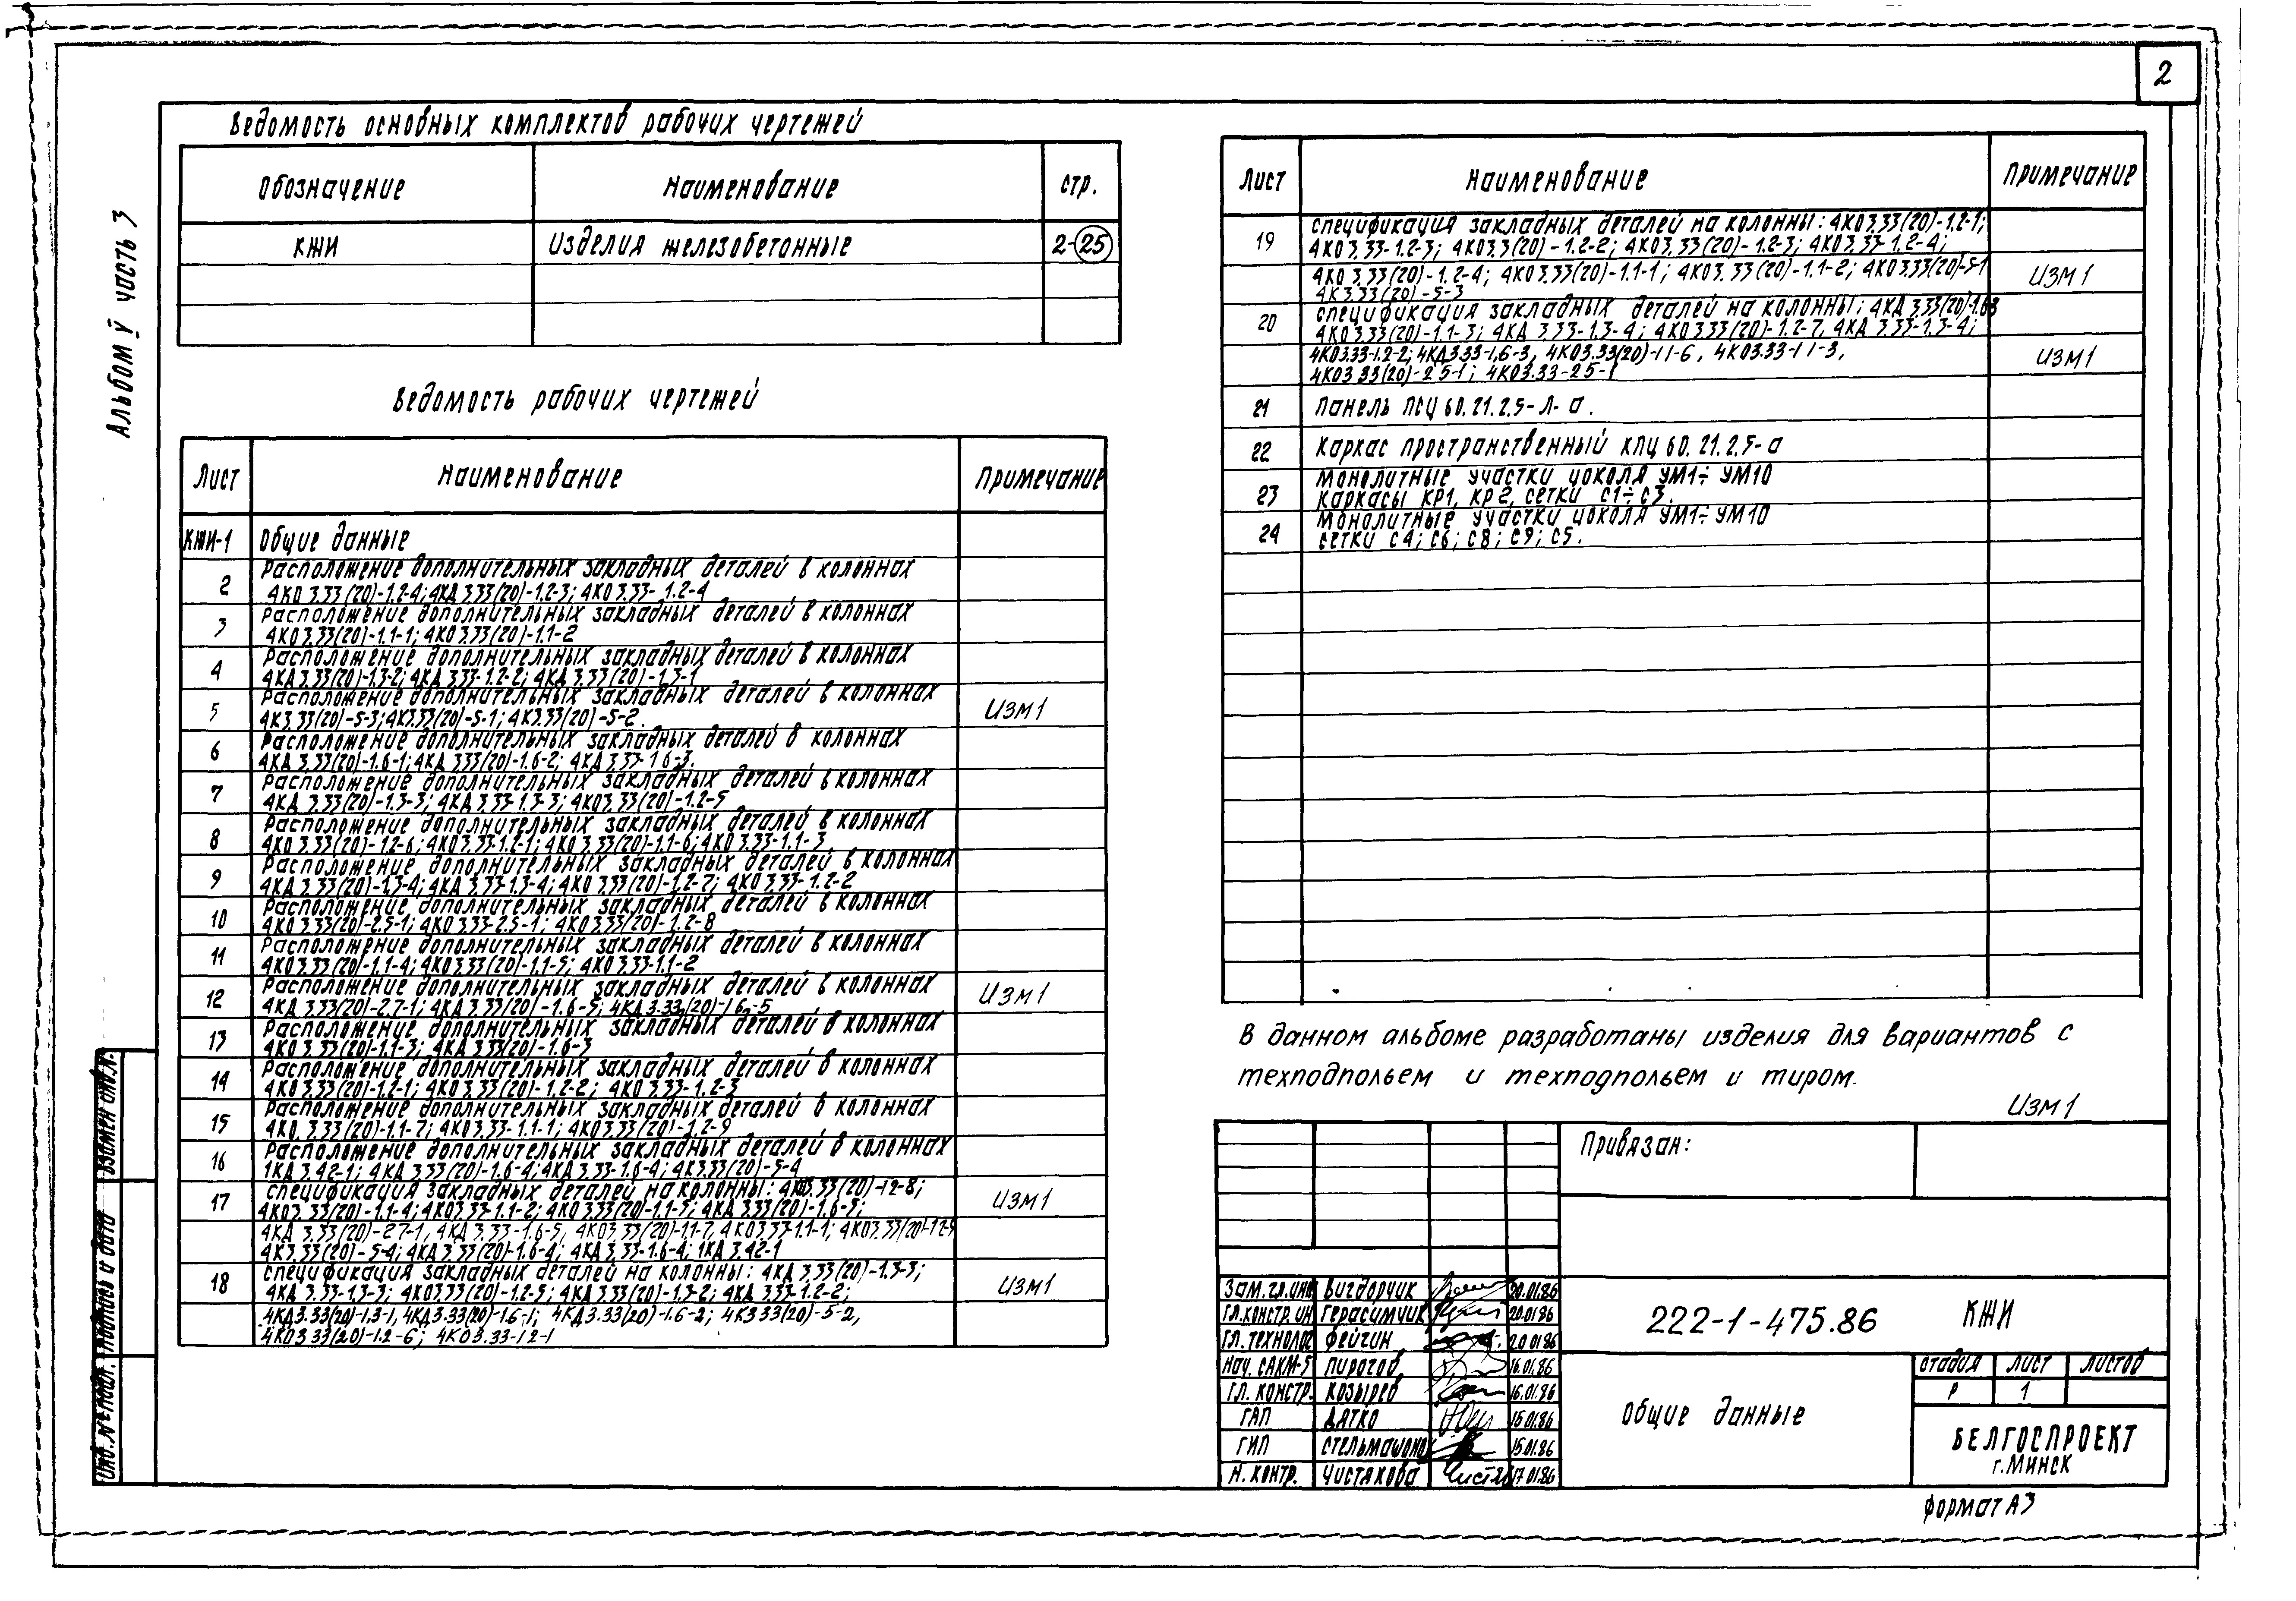 2
Альбом V часть 3
Ведомость основных комплектов рабочих чертежей
Обозначение Наименование стр.
КЖИ Изделия железобетонные 2-25
Ведомость рабочих чертежей
Лист Наименование Примечание
КЖИ-1 Общие данные
2 Расположение дополнительных закладных деталей в колоннах
4КО 3.33(20)-1.2-4; 4КД 3.33(20)-1.2-3; 4КО 3.33-1.2-4
3 Расположение дополнительных закладных деталей в колоннах
4КО 3.33(20)-1.1-1; 4КО 3.33(20)-1.1-2
4 Расположение дополнительных закладных деталей в колоннах
4КД 3.33(20)-1.3-2; 4КД 3.33-1.2-2; 4КД 3.33(20)-1.3-1
5 Расположение дополнительных закладных деталей в колоннах
4К3.33(20)-5-3; 4К3.33(20)-5-1; 4К3.33(20)-5-2. Изм1
6 Расположение дополнительных закладных деталей в колоннах
4КД 3.33(20)-1.6-1; 4КД 3.33(20)-1.6-2; 4КД 3.33-1.6-3.
7 Расположение дополнительных закладных деталей в колоннах
4КД 3.33(20)-1.3-3; 4КД 3.33-1.3-3; 4КО3.33(20)-1.2-5
8 Расположение дополнительных закладных деталей в колоннах
4КО 3.33(20)-1.2-6; 4КО3.33-1.2-1; 4КО3.33(20)-1.1-6; 4КО3.33-1.1-3.
9 Расположение дополнительных закладных деталей в колоннах
4КД 3.33(20)-1.3-4; 4КД 3.33-1.3-4; 4КО 3.33(20)-1.2-7; 4КО 3.33-1.2-2
10 Расположение дополнительных закладных деталей в колоннах
4КО 3.33(20)-2.5-1; 4КО 3.33-2.5-1; 4КО3.33(20)-1.2-8
11 Расположение дополнительных закладных деталей в колоннах
4КО3.33(20)-1.1-4; 4КО3.33(20)-1.1-5; 4КО3.33-1.1-2
12 Расположение дополнительных закладных деталей в колоннах
4КД 3.33(20)-2.7-1; 4КД 3.33(20)-1.6-5; 4КД3.33(20)-1.6-5 Изм1
13 Расположение дополнительных закладных деталей в колоннах
4КО 3.33(20)-1.1-3; 4КД 3.33(20)-1.6-3
14 Расположение дополнительных закладных деталей в колоннах
4КО3.33(20)-1.2-1; 4КО3.33(20)-1.2-2; 4КО3.33-1.2-3
15 Расположение дополнительных закладных деталей в колоннах
4КО.3.33(20)-1.1-7; 4КО3.33-1.1-1; 4КО3.33(20)-1.2-9
16 Расположение дополнительных закладных деталей в колоннах
1КД 3.42-1; 4КД 3.33(20)-1.6-4; 4КД 3.33-1.6-4; 4К3.33(20)-5-4
17 спецификация закладных деталей на колонны: 4КО3.33(20)-1.2-8;
4КО3.33(20)-1.1-4; 4КО3.33-1.1-2; 4КО 3.33(20)-1.1-5; 4КД 3.33(20)-1.6-5; Изм1
4КД 3.33(20)-2.7-1, 4КД 3.33-1.6-5, 4КО3.33(20)-1.1-7, 4КО3.33-1.1-1; 4КО3.33(20)-1.2-9
4К3.33(20)-5-4; 4КД 3.33(20)-1.6-4; 4КД 3.33-1.6-4; 1КД 3.42-1
18 спецификация закладных деталей на колонны: 4КД 3.33(20)-1.3-3;
4КД 3.33-1.3-3; 4КО3.33(20)-1.2-5; 4КД 3.33(20)-1.3-2; 4КД 3.33-1.2-2; Изм1
4КД3.33(20)-1.3-1, 4КД3.33(20)-1.6-1; 4КД3.33(20)-1.6-2; 4К3.33(20)-5-2,
4КО3.33(20)-1.2-6; 4КО3.33-1.2-1
Лист Наименование Примечание
19 спецификация закладных деталей на колонны: 4КО3.33(20)-1.2-1;
4КО3.33-1.2-3; 4КО3.3(20)-1.2-2; 4КО3.33(20)-1.2-3; 4КО3.33-1.2-4;
4КО 3.33(20)-1.2-4; 4КО3.33(20)-1.1-1; 4КО3.33(20)-1.1-2; 4КО3.33(20)-5-1 Изм1
4К3.33(20)-5-3
20 спецификация закладных деталей на колонны: 4КД 3.33(20)
4КО3.33(20)-1.1-3; 4КД 3.33-1.3-4; 4КО3.33(20)-1.2-7, 4КД 3.33-1.3-4;
4КО3.33-1.2-2; 4КД3.33-1.6-3, 4КО3.33(20)-1.1-6, 4КО3.33-1.1-3, Изм1
4КО3.33(20)-2.5-1; 4КО3.33-2.5-1
21 Панель ПСЦ 60.21.2.5-Л-а.
22 Каркас пространственный КПЦ 60.21.2.5-а
23 Монолитные участки цоколя УМ1÷УМ10
Каркасы КР1, КР2, сетки С1÷С3.
24 Монолитные участки цоколя УМ1÷УМ10
сетки С4; С6; С8; С9; С5.
В данном альбоме разработаны изделия для вариантов с
техподпольем и техподпольем и тиром.
Изм1
Привязан:
Зам.гл.инж Вигдорчик 20.01.86
Гл.констр.ин Герасимчик 20.01.86
Гл.технолог Фейгин 20.01.86
Нач. САКМ-5 Пирогов 16.01.86
Гл. констр. Козырев 16.01.86
ГАП Дятко 15.01.86
ГИП Стельмашонок 15.01.86
Н. контр. Чистякова 17.01.86
222-1-475.86 КЖИ
Общие данные
стадия лист листов
Р 1
БЕЛГОСПРОЕКТ
г.Минск
Формат А3
Инв.№ подл. Подпись и дата Взамен инв.№